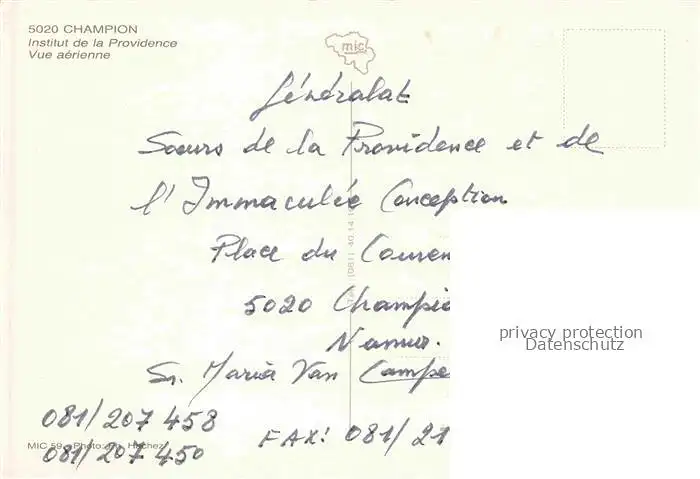 5020 CHAMPION
Institut de la Providence
Vue aérienne
mic
Généralat
Soeurs de la Providence et de
l'Immaculée Conception
Place du Couven
5020 Champio
Namur.
Sr. Maria Van Campe
081/207 458
FAX: 081/21
081/207 450
MIC 59
privacy protection
Datenschutz